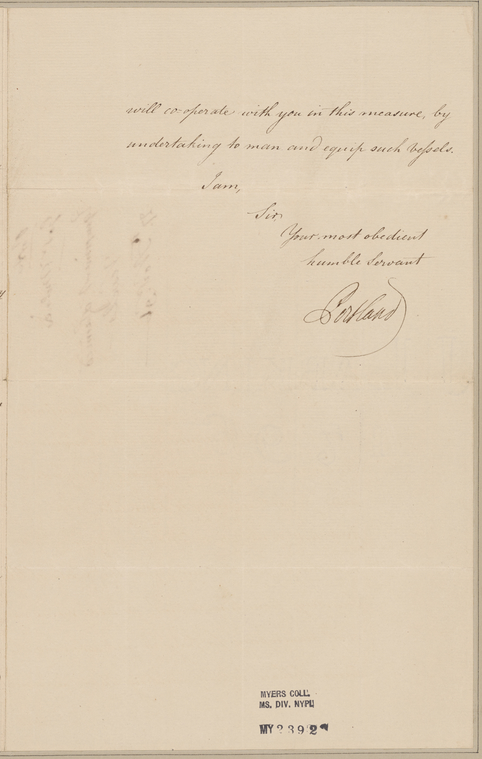 will co-operate with you in this measure, by
undertaking to man and equip such Vessels.
I am,
Sir,
Your most obedient
humble Servant
Portland
MYERS COLL.
MS. DIV. NYPL
MY 2392